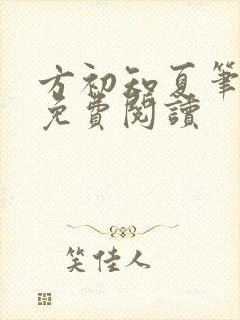 方初知夏筆
免費閱讀
笑佳人